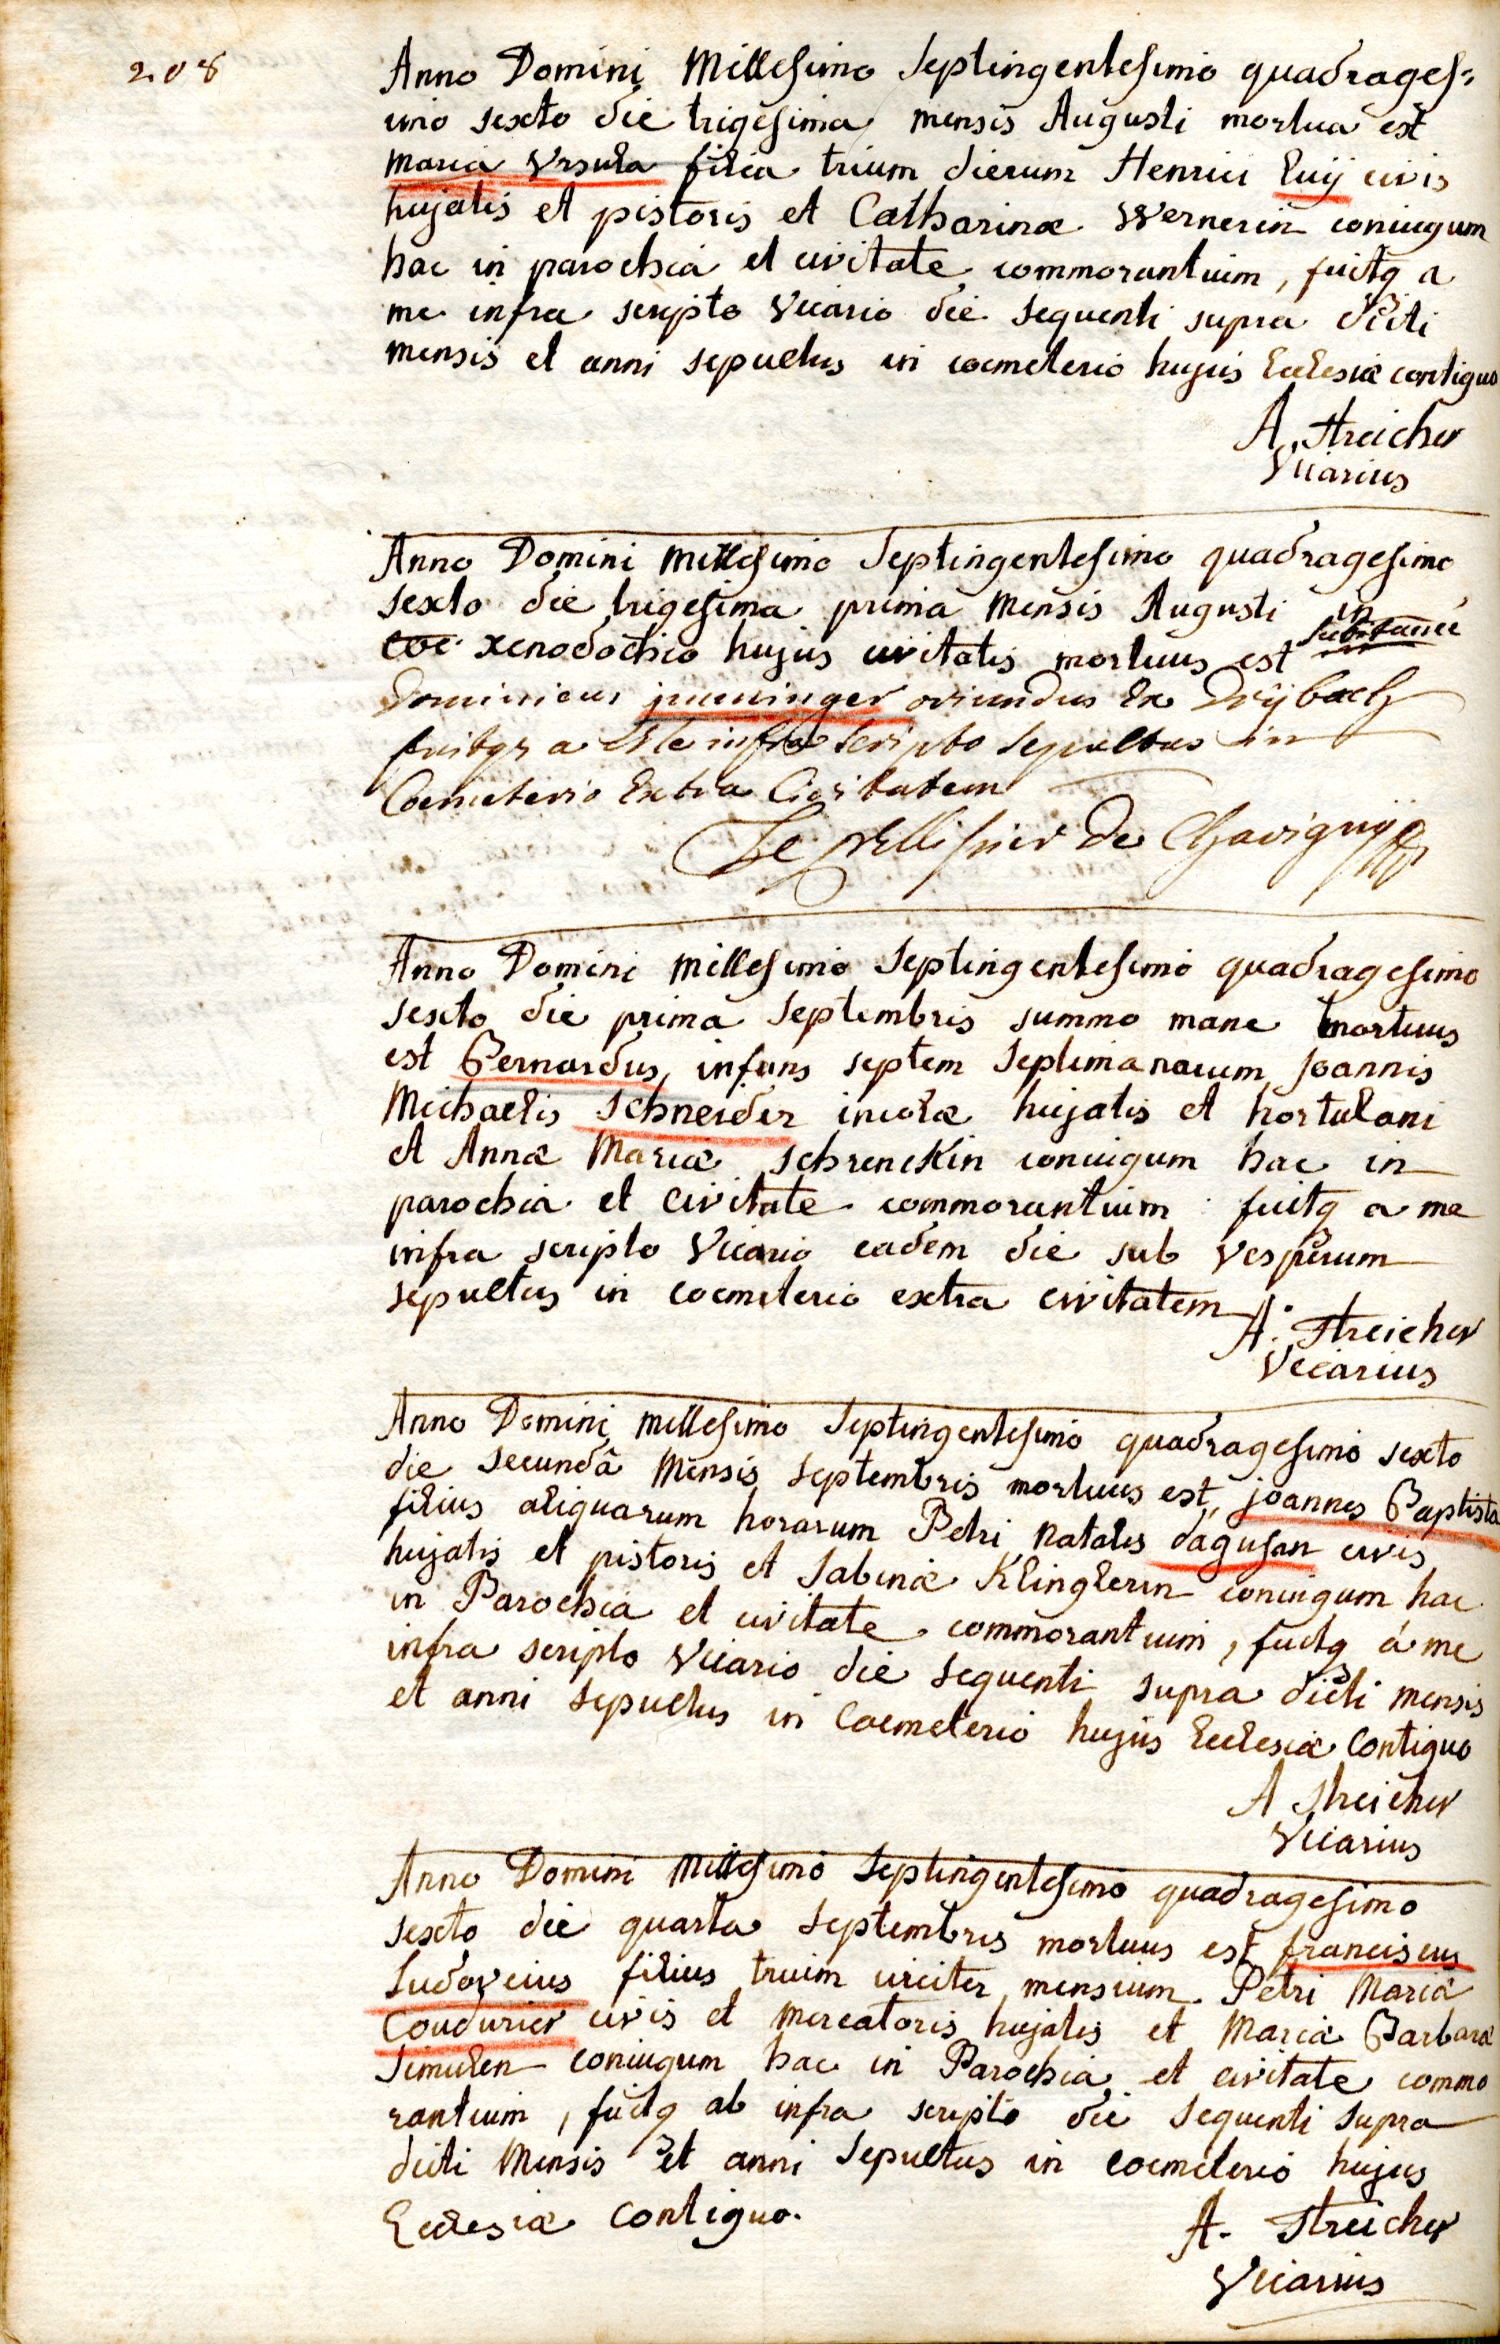 208
Anno Domini Millesimo Septingentesimo quadrages=
imo sexto die trigesima mensis Augusti mortua est
Maria Ursula filia trium dierum Henrici Luij civis
hujatis et pistoris et Catharinæ Wernerin coniugum
hac in parochia et civitate commorantium, fuitq a
me infra scripto Vicario die sequenti supra dicti
mensis et anni sepultus in coemeterio hujus Ecclesiæ contiguo
A. Streicher
Vicarius
Anno Domini Millesimo Septingentesimo quadragesimo
sexto die trigesima prima Mensis Augusti in
xenodochio hujus civitatis mortuus est
Dominicus oriundus Ex
fuitqz a infra scripto sepultus in
Coemeterio Extra Civitatem
Le Pellissier De Chavigny
Anno Domini Millesimo Septingentesimo quadragesimo
sexto die prima Septembris summo mane mortuus
est Bernardus, infans septem Septimanarum Joannis
Michaelis Schneider incolæ hujatis et hortulani
et Annæ Mariæ Schrenckin coniugum hac in
parochia et civitate commorantium fuitq a me
infra scripto Vicario eadem die sub vesperum
sepultus in coemeterio extra civitatem
A. Streicher
Vicarius
Anno Domini Millesimo Septingentesimo quadragesimo sexto
die secunda Mensis Septembris mortuus est, joannes Baptista
filius aliquarum horarum Petri Natalis dagusan civis
hujatis et pistoris et Sabinæ Klinglerin coniugum hac
in Parochia et civitate commorantium, fuitq á me
infra scripto Vicario die sequenti supra dicti mensis
et anni sepultus in Coemeterio hujus Ecclesiæ Contiguo
A Streicher
Vicarius
Anno Domini Millesimo Septingentesimo quadragesimo
sexto die quarta Septembris mortuus est franciscus
Ludovicus filius trium circiter mensium Petri Mariæ
Coudurier civis et Mercatoris hujatis et Mariæ Barbaræ
Simulen coniugum hac in Parochia et civitate commo
rantium, fuitq ab infra scripto die sequenti supra
dicti Mensis et anni Sepultus in coemeterio hujus
Ecclesiæ Contiguo.
A. Streicher
Vicarius